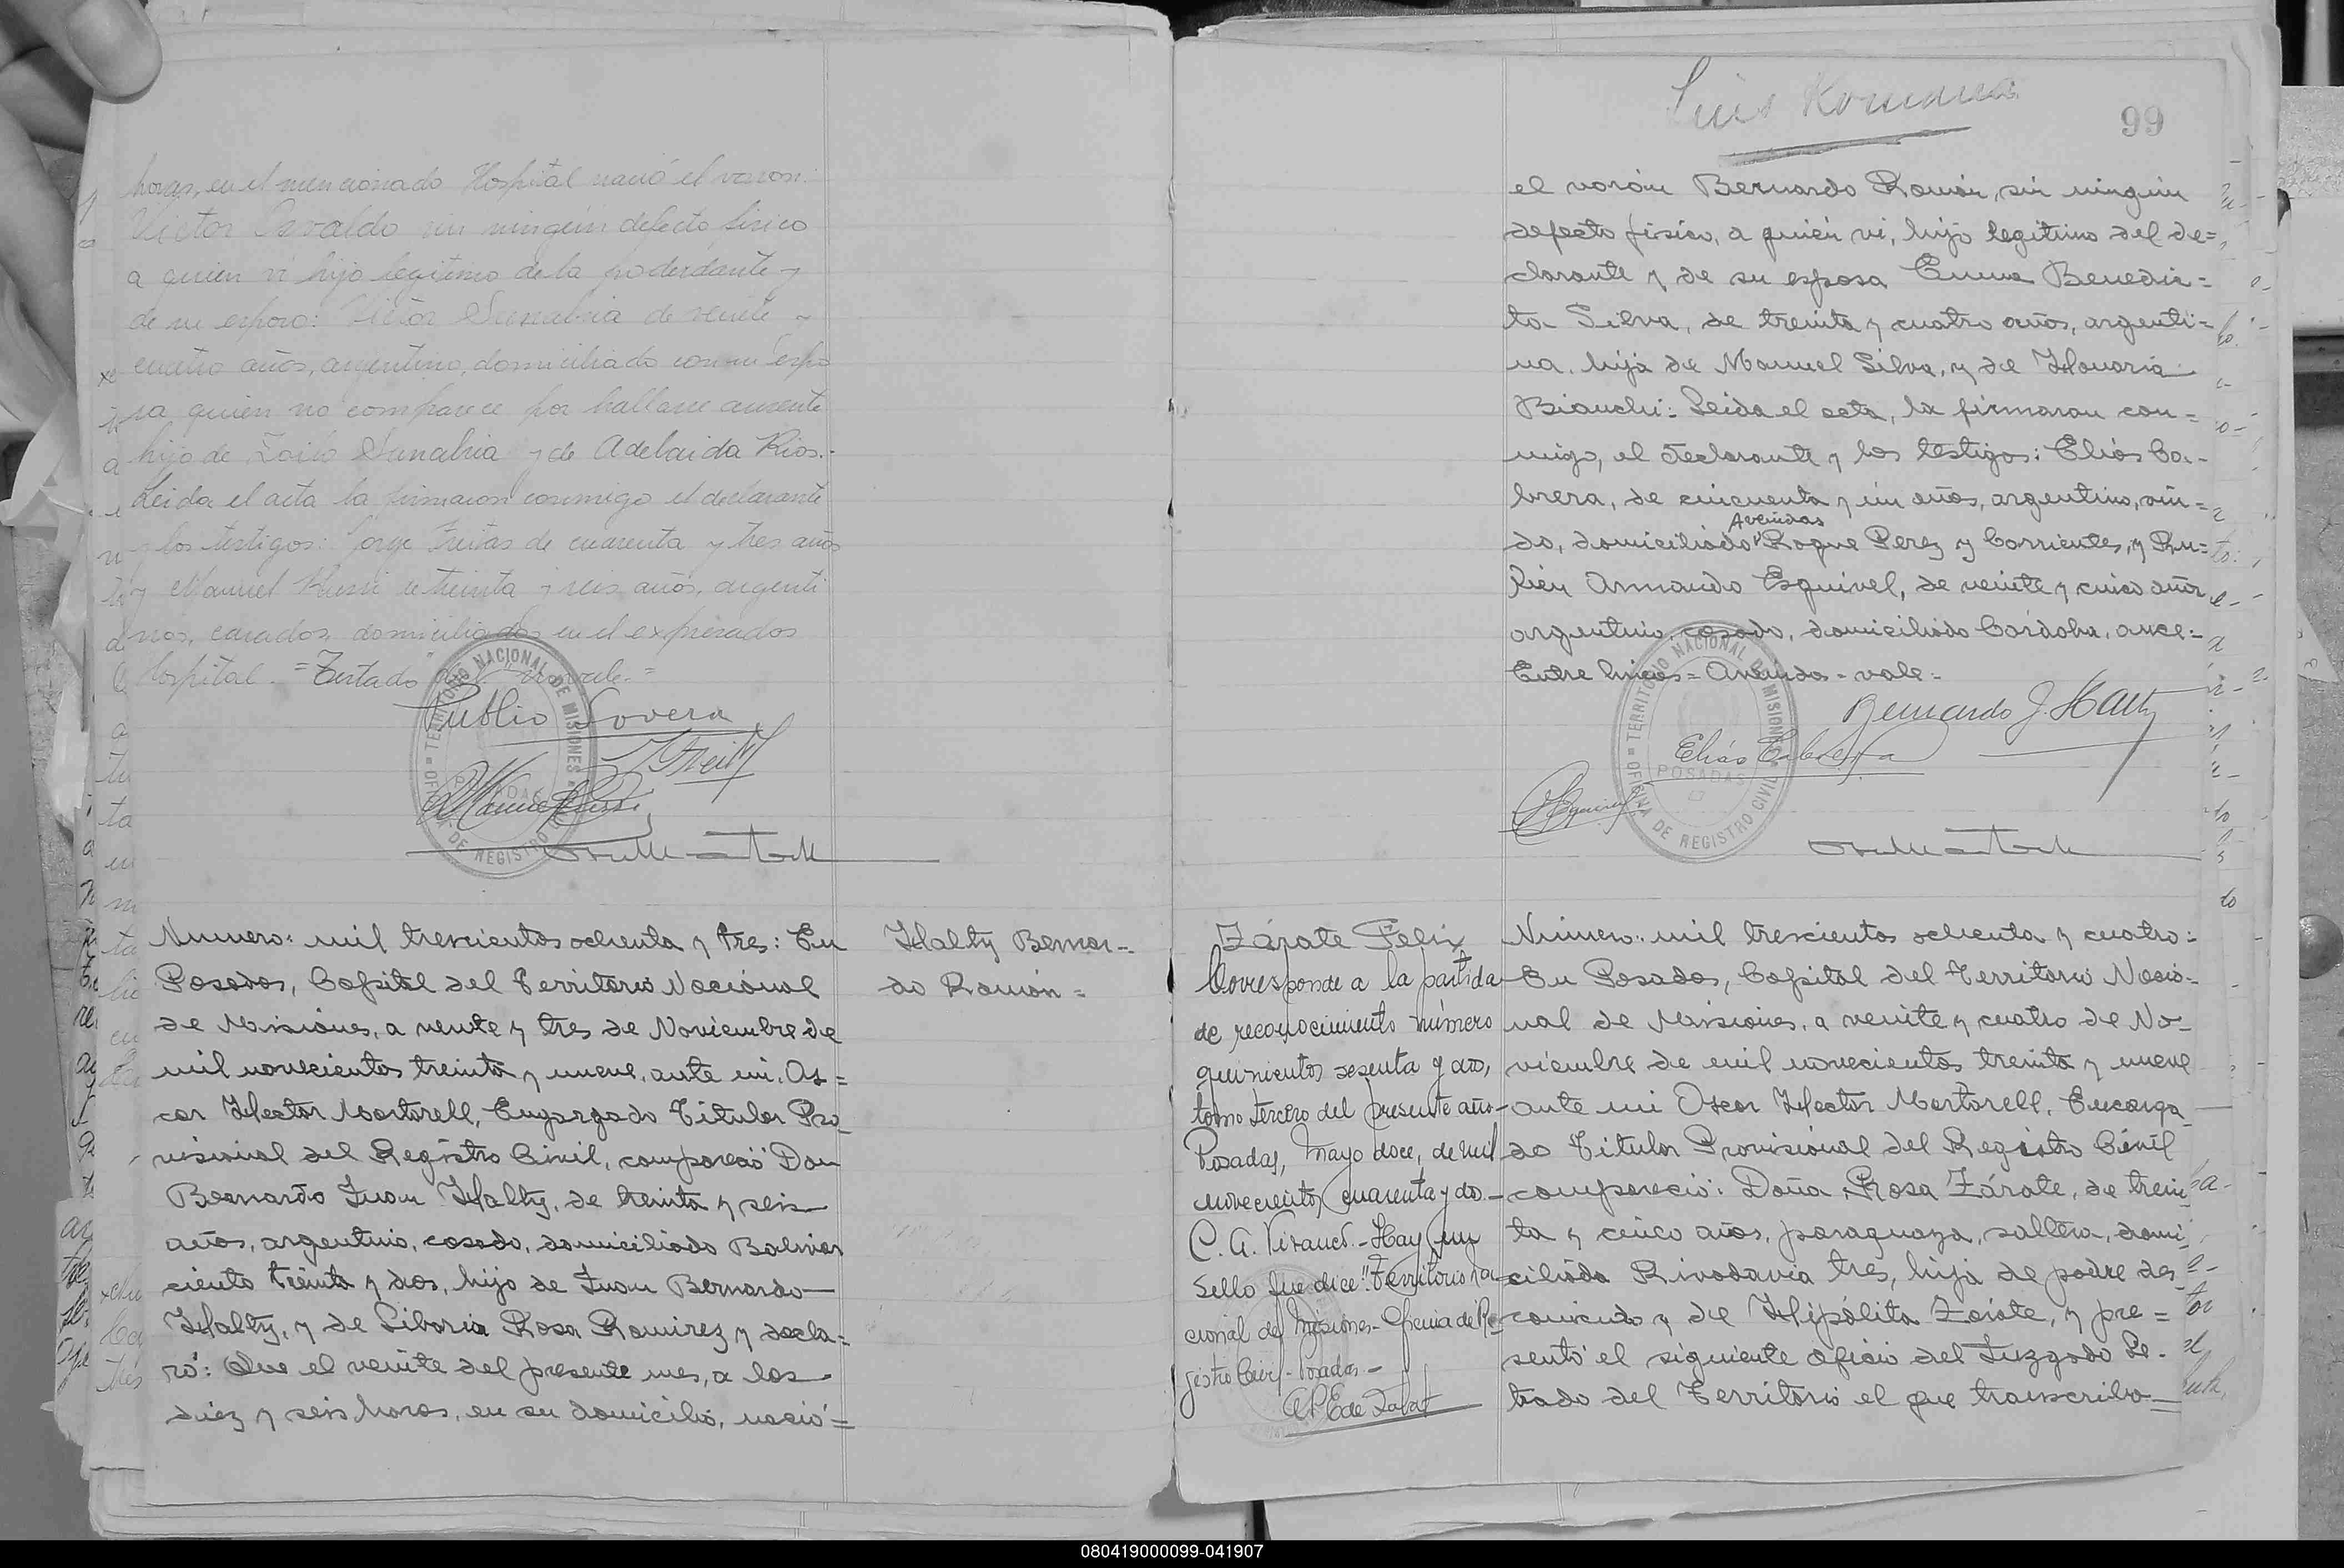 horas, en el mencionado Hospital nació el varon:
Victor Osvaldo sin ningún defecto fisico
a quien vi hijo legitimo de la poderdante y
de su esposo: Victor Sanabria de veinte y
cuatro años, argentino, domiciliado con su espo
sa quien no comparece por hallarse ausente
hijo de Zoilo Sanabria y de Adelaida Rios.-
Leida el acta la firmaron conmigo el declarante
y los testigos: Jorge Freitas de cuarenta y tres años
y Manuel Russi de treinta y seis años, argenti
nos, casados, domiciliados en el expresados
Hospital. =Testado
Publio Lovera
TERRITORIO NACIONAL DE MISIONES
OFICINA DE REGISTRO CIVIL
POSADAS
Numero: mil trescientos ochenta y tres: En
Posadas, Capital del Territorio Nacional
de Misiones, a veinte y tres de Noviembre de
mil novecientos treinta y nueve, ante mi, Os=
car Hector Martorell, Encargado Titular Pro_
visional del Registro Civil, compareció Don
Bernardo Juan Halty, de treinta y seis
años, argentino, casado, domiciliado Bolivar
ciento treinta y dos, hijo de Juan Bernardo
Halty, y de Liboria Rosa Ramirez y decla=
ró: Que el veinte del presente mes, a las
diez y seis horas, en su domicilio, nació=
Halty Bernar=
do Ramón=
Luis Romana
99
el varón Bernardo Ramón, sin ningún
defecto fisico, a quien vi, hijo legitimo del de=
clarante y de su esposa Emma Benedic=
ta Silva, de treinta y cuatro años, argenti=
na, hija de Manuel Silva, y de Honoria
Bianchi: Leida el acta, la firmaron con=
migo, el declarante y los testigos: Elías Ca=
brera, de cincuenta y un años, argentino, viu=
Avenidas
do, domiciliado Roque Perez y Corrientes, y Ru=
bén Armando Esquivel, de veinte y cinco años
argentino, casado, domiciliado Córdoba, once=
Entre lineas=Avenidas=vale=
Bernardo J. Halty
Elías Cabrera
REsquivel
TERRITORIO NACIONAL DE MISIONES
OFICINA DE REGISTRO CIVIL
POSADAS
Zárate Felix
Corresponde a la partida
de reconocimiento número
quinientos sesenta y dos,
tomo tercero del presente año-
Posadas, Mayo doce, de mil
novecientos cuarenta y dos.-
C. A. - Hay un
sello que dice: "Territorio Na
cional de Misiones- Oficina de Re
gistro Civil- Posadas-
Número: mil trescientos ochenta y cuatro=
En Posadas, Capital del Territorio Nacio=
nal de Misiones, a veinte y cuatro de No_
viembre de mil novecientos treinta y nueve
ante mi Oscar Hector Martorell, Encarga_
do Titular Provisional del Registro Civil
compareció: Doña Rosa Zárate, de trein
ta y cinco años, paraguaya, soltera, domi
ciliada Rivadavia tres, hija de padre des
conocido y de Hipólita Zárate, y pre=
sentó el siguiente oficio del Juzgado Le-
trado del Territorio el que transcribo=
080419000099-041907